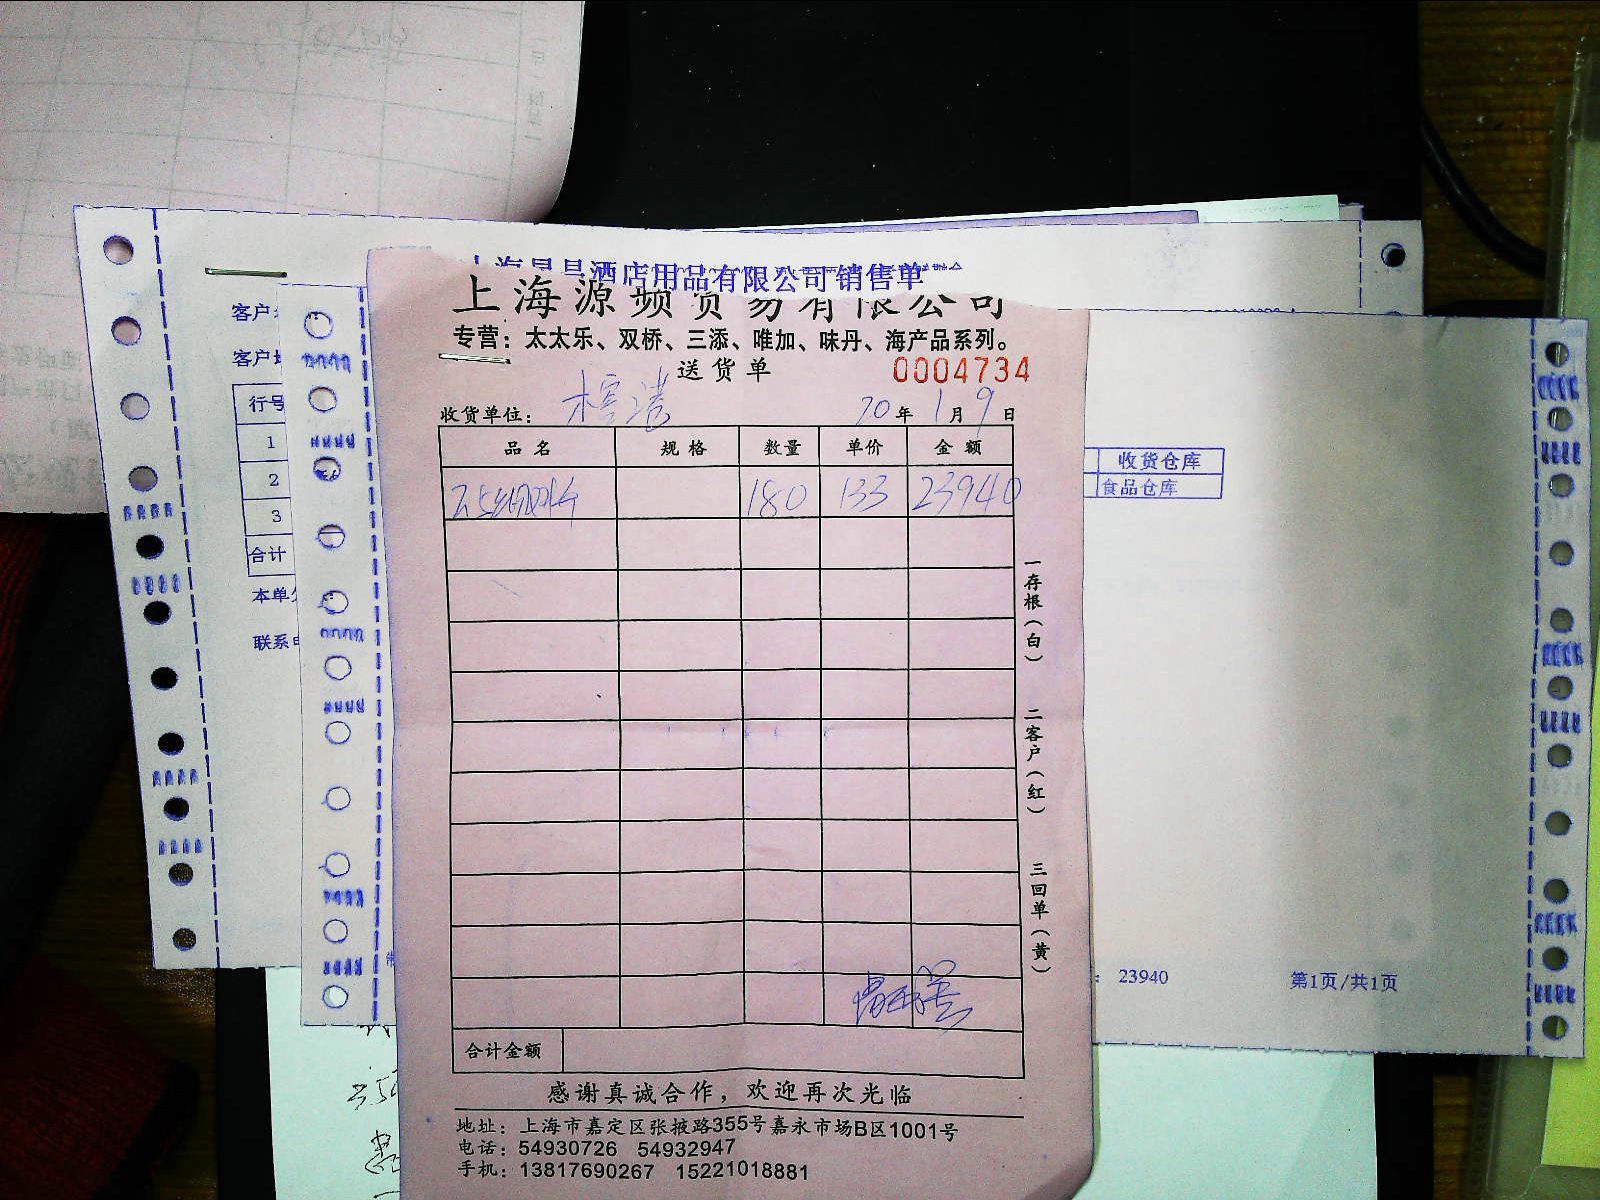 酒店用品有限公司销售单
上海源频贸易有限公司
专营：太太乐、双桥、三添、唯加、味丹、海产品系列。
送货单 0004734
收货单位： 20年1月9日
品名 规格 数量 单价 金额
180 133 23940
合计金额
感谢真诚合作，欢迎再次光临
地址：上海市嘉定区张掖路355号嘉永市场B区1001号
电话：54930726 54932947
手机：13817690267 15221018881
一存根（白）
二客户（红）
三回单（黄）
客户
客户
行号
1
2
3
合计
本单
联系
收货仓库
食品仓库
23940
第1页/共1页